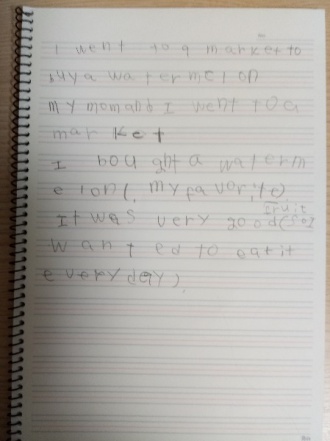 I went to a market to
buy a watermelon
my mom and I went to a
market
I bought a waterm
elon(my favorite)
fruit
It was very good(so I
wanted to eat it
everyday)